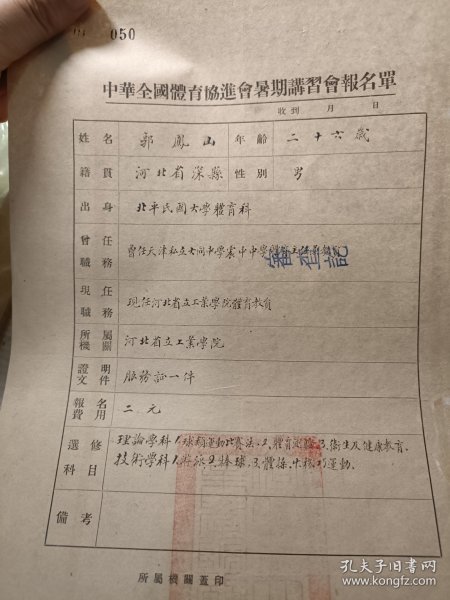 050
中華全國體育協進會暑期講習會報名單
收到 月 日
姓名 郭鳳山 年齡 二十六歲
籍貫 河北省深縣 性別 男
出身 北平民國大學體育科
曾任職務 曾任天津私立 中學 中中學體育
審查記
現任職務 現任河北省立工業學院體育教員
所屬機關 河北省立工業學院
證明文件 服務証一件
報名費用 二元
選修科目 理論學科 球類運動比賽法 體育測驗 衛生及健康教育
技術學科 游泳 棒球 體操 運動
備考
所屬機關蓋印
孔夫子旧书网
www.kongfz.com